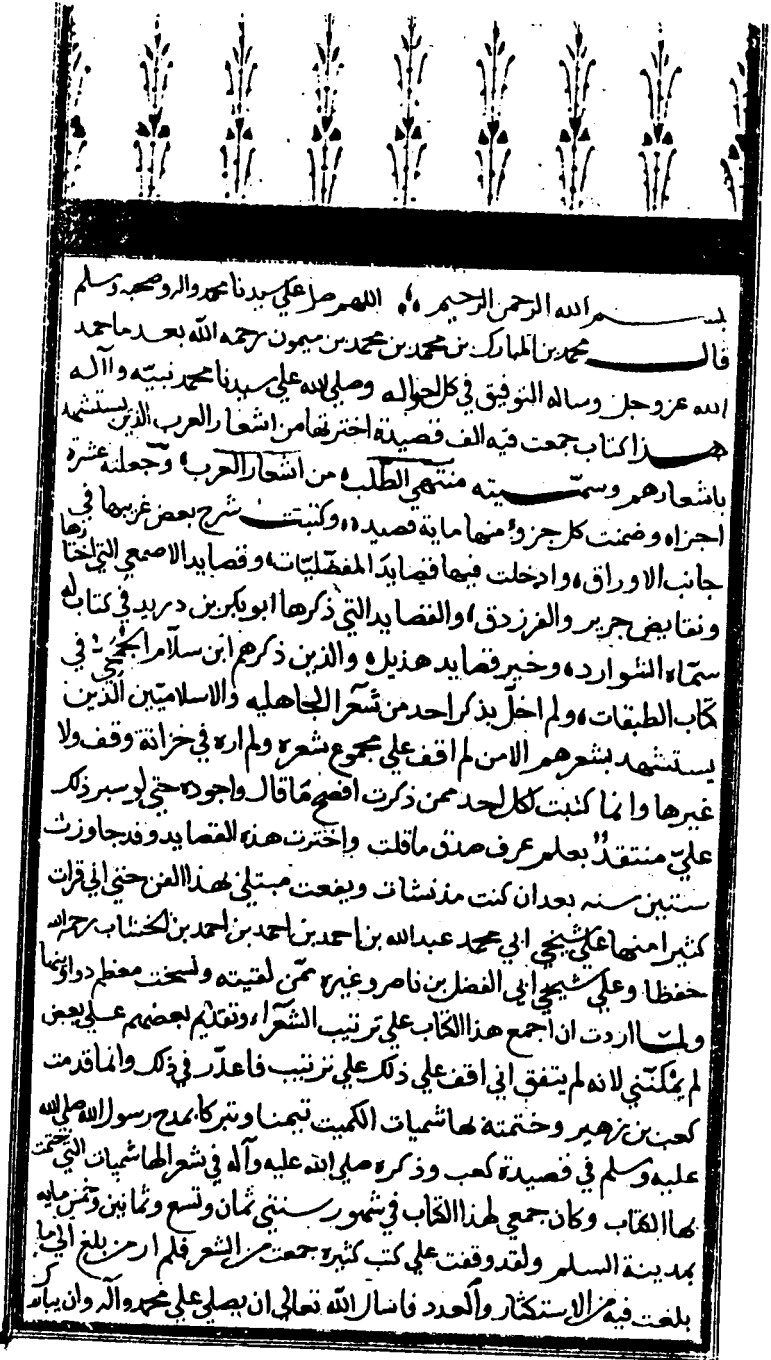 بسم الله الرحمن الرحيم ، اللهم صل علي سيدنا محمد واله وصحبه وسلم
قال محمد بن المبارك بن محمد بن محمد بن ميمون رحمه الله بعد ما حمد
الله عز وجل وساله التوفيق في كل احواله وصلي الله علي سيدنا محمد نبيّه وآله
هذا كتاب جمعت فيه الف قصيدة اخترتها من اشعار العرب الذين يستشهد
باشعارهم وسمّيته منتهي الطلب من اشعار العرب وجعلته عشرة
اجزاء وضمنت كل جزؤ منها ماية قصيده وكتبت شرح بعض غريبها في
جانب الاوراق وادخلت فيها قصايد المفضّليّات وقصايد الاصمعي التي اختارها
ونقايض جرير والفرزدق والقصايد التي ذكرها ابو بكر بن دريد في كتاب له
سمّاه الشوارد وخير قصايد هذيل والذين ذكرهم ابن سلّام الجُمَحيّ في
كتاب الطبقات ولم اخلّ بذكر احد من شعرا الجاهليه والاسلاميّين الّذين
يستشهد بشعرهم الا من لم اقف علي مجموع شعره ولم اره في خزانة وقف ولا
غيرها وانما كتبت لكل احد ممن ذكرت افصح ما قال واجوده حتي لو سبر ذلك
عليّ منتقدٌ بعلم عرف صدق ما قلت واخترت هذه القصايد وقد جاوزت
ستين سنه بعد ان كنت مذ نشات ويفعت مبتلي بهذا الفن حتي اني قرات
كثيرا منها علي شيخي ابي محمد عبد الله بن احمد بن احمد بن احمد بن الخشاب رحمه الله
حفظا وعلي شيخي ابي الفضل بن ناصر وغيره ممّن لقيته ونسخت معظم دواوينها
ولمّا اردت ان اجمع هذا الكتاب علي ترتيب الشعرا وتقديم بعضهم علي بعض
لم يمكنّي لانه لم يتفق اني اقف علي ذلك علي ترتيب فاعذر في ذلك وانما قدمت
كعب بن زهير وختمته بهاشميات الكميت تيمنا وتبركا بمدح رسول الله صلي الله
عليه وسلم في قصيدة كعب وذكره صلي الله عليه وآله في شعر الهاشميات التي ختمت
بها الكتاب وكان جمعي لهذا الكتاب في شهور سنتي ثمان وتسع وثمانين وخمس مايه
بمدينة السلم ولقد وقفت علي كتب كثيره جمعت من الشعر فلم ار من بلغ الي ما
بلغت فيه من الاستكثار والعدد فاسال الله تعالي ان يصلي علي محمد وآله وان يبارك